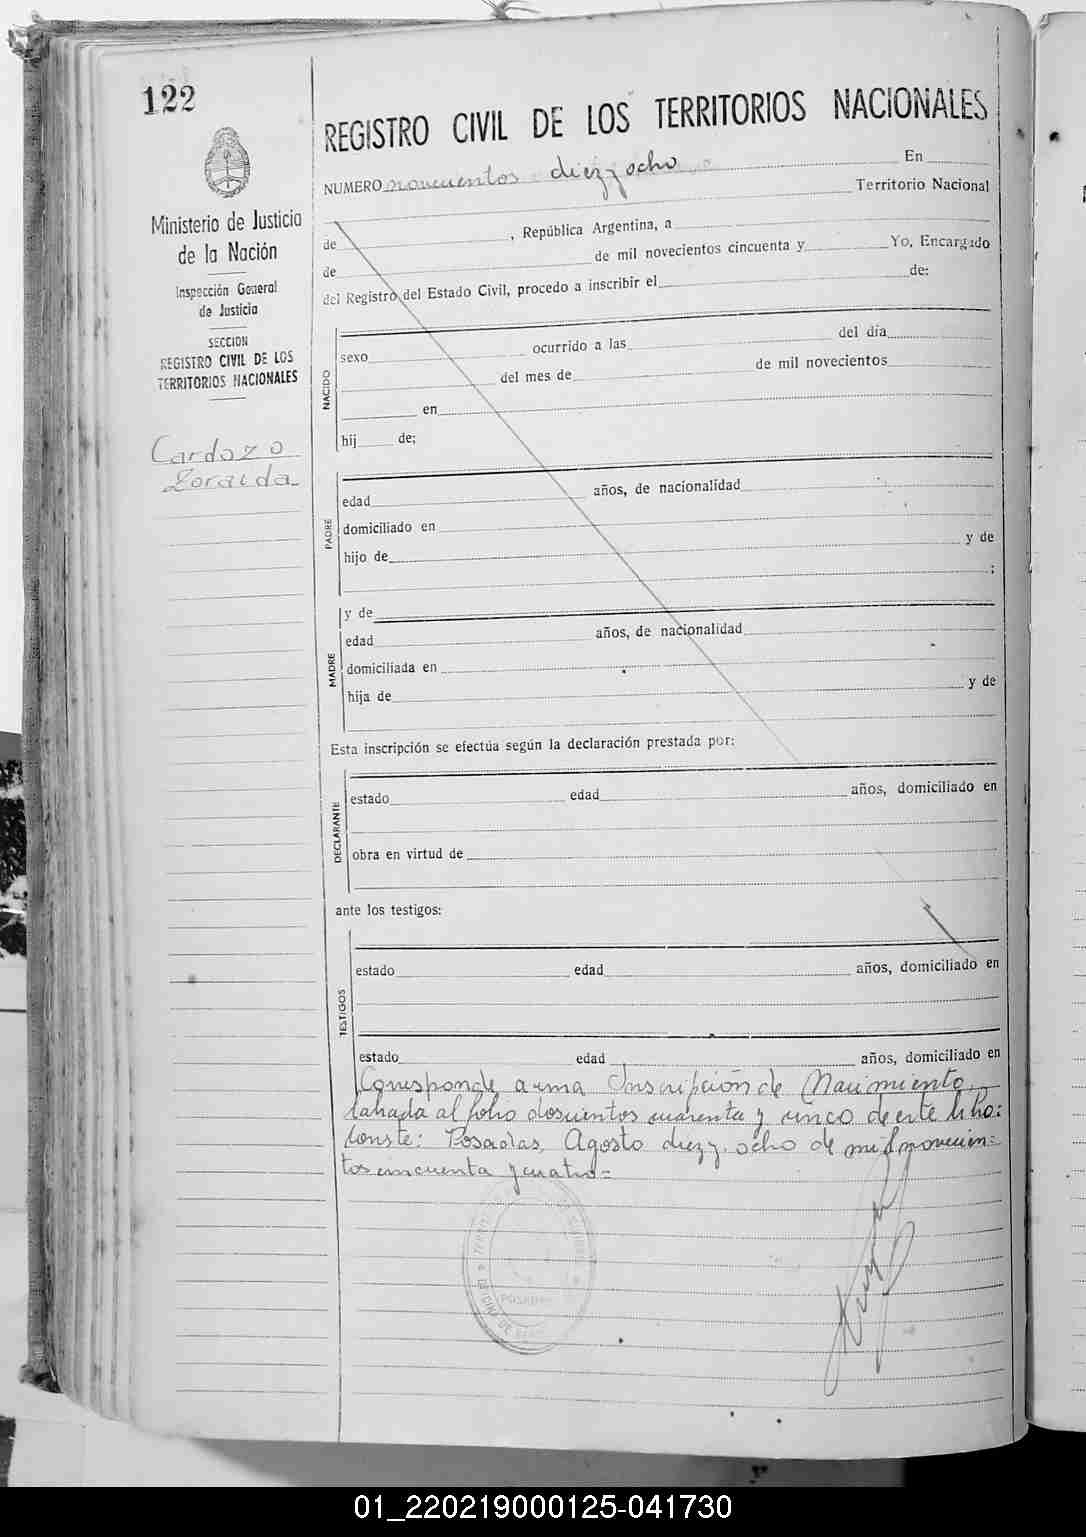 122
REGISTRO CIVIL DE LOS TERRITORIOS NACIONALES
Ministerio de Justicia
de la Nación
Inspección General
de Justicia
SECCION
REGISTRO CIVIL DE LOS
TERRITORIOS NACIONALES
Cardozo
Zoraida
NUMERO novecientos diez y ocho En
Territorio Nacional
de , República Argentina, a
de de mil novecientos cincuenta y Yo, Encargado
del Registro del Estado Civil, procedo a inscribir el de:
NACIDO
sexo ocurrido a las del día
del mes de de mil novecientos
en
hij de;
PADRE
edad años, de nacionalidad
domiciliado en
hijo de y de
;
MADRE
y de
edad años, de nacionalidad
domiciliada en
hija de y de
Esta inscripción se efectúa según la declaración prestada por:
DECLARANTE
estado edad años, domiciliado en
obra en virtud de
ante los testigos:
TESTIGOS
estado edad años, domiciliado en
estado edad años, domiciliado en
Corresponde a una Inscripción de Nacimiento,
labrada al folio doscientos cuarenta y cinco de este libro:
Conste: Posadas, Agosto diez y ocho de mil novecien=
tos cincuenta y cuatro=
POSADAS
01_220219000125-041730